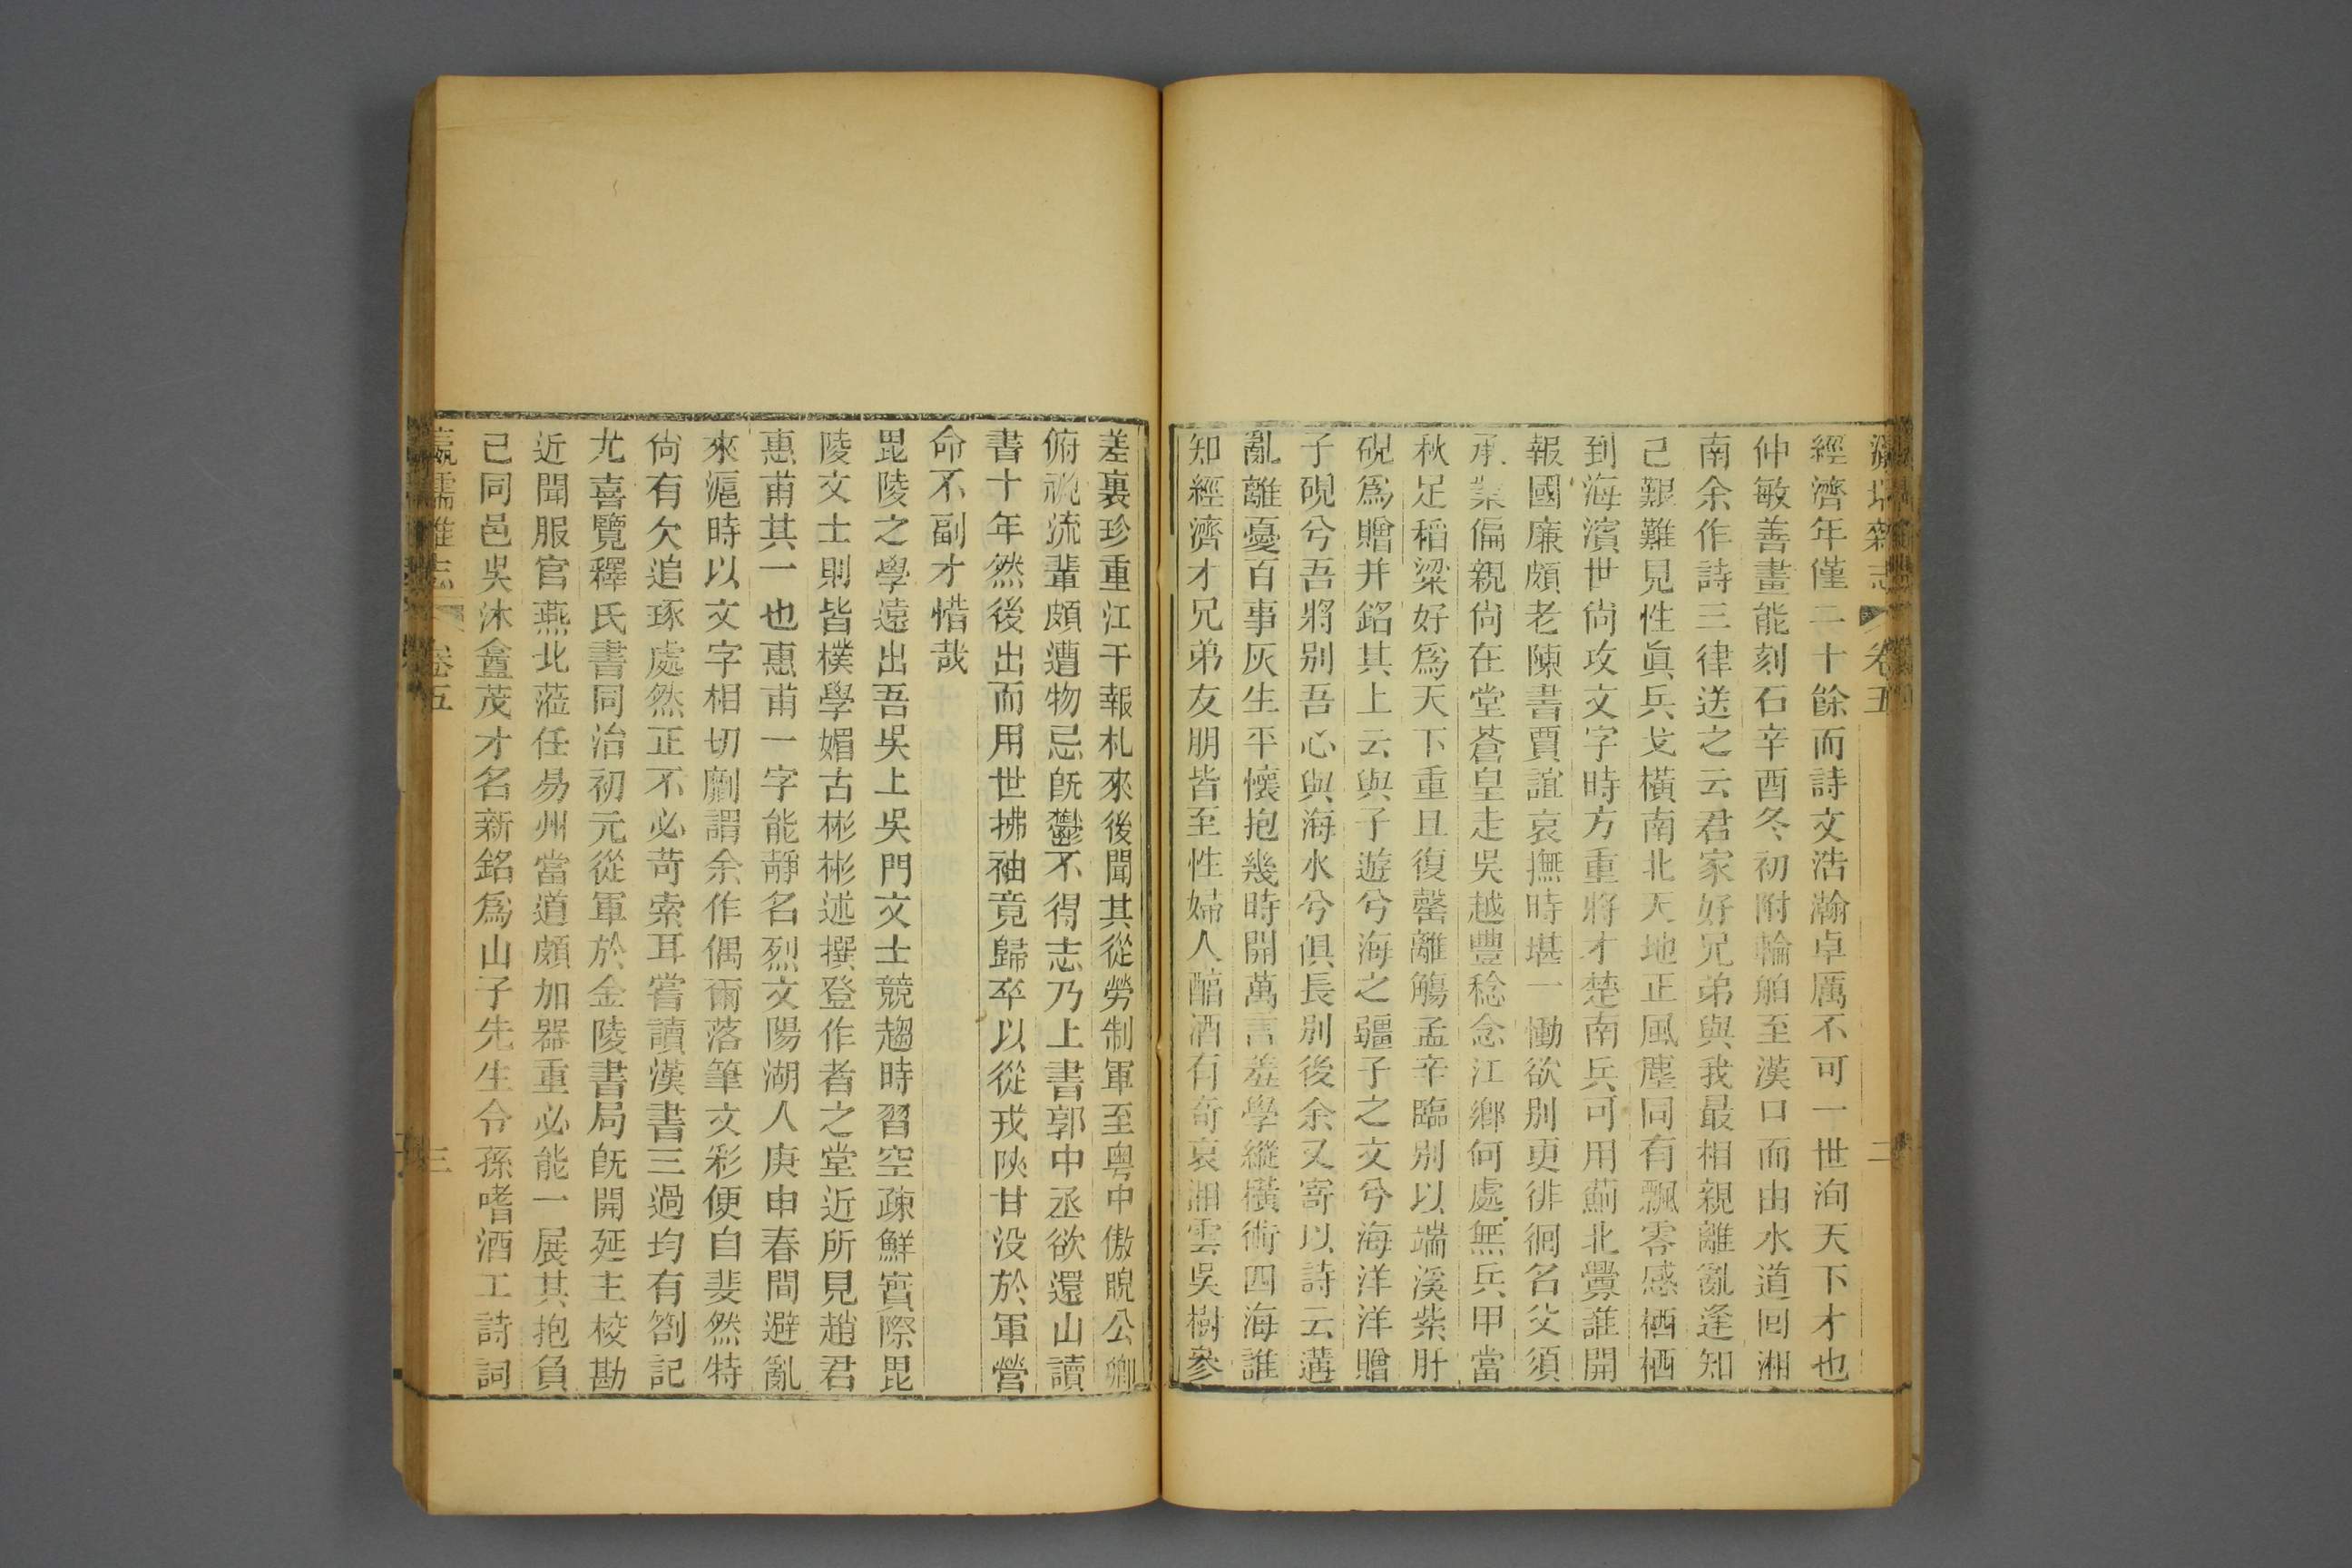 瀛壖雜志 卷五 二
經濟年僅二十餘而詩文浩瀚卓厲不可一世洵天下才也
仲敏善畫能刻石辛酉冬初附輪舶至漢口而由水道回湘
南余作詩三律送之云君家好兄弟與我最相親離亂逢知
己艱難見性眞兵戈橫南北天地正風塵同有飄零感栖栖
到海濱世尙攻文字時方重將才楚南兵可用薊北釁誰開
報國廉頗老陳書賈誼哀撫時堪一慟欲別更徘徊名父須
承業偏親尙在堂蒼皇走吳越豐稔念江鄉何處無兵甲當
秋足稻粱好爲天下重且復罄離觴孟辛臨別以端溪紫肝
硯爲贈并銘其上云與子遊兮海之疆子之文兮海洋洋贈
子硯兮吾將别吾心與海水兮俱長别後余又寄以詩云遘
亂離憂百事灰生平懷抱幾時開萬言羞學縱橫術四海誰
知經濟才兄弟友朋皆至性婦人醕酒有奇哀湘雲吳樹參
差裏珍重江干報札來後聞其從勞制軍至粵中傲睨公卿
俯視流輩頗遭物忌旣鬱不得志乃上書郭中丞欲還山讀
書十年然後出而用世拂袖竟歸卒以從戎陝甘没於軍營
命不副才惜哉
毘陵之學遠出吾吳上吳門文士競趨時習空疎鮮實際毘
陵文士則皆樸學媚古彬彬述撰登作者之堂近所見趙君
惠甫其一也惠甫一字能靜名烈文陽湖人庚申春間避亂
來滬時以文字相切劘謂余作偶爾落筆文彩便自斐然特
尙有欠追琢處然正不必苛索耳嘗讀漢書三過均有劄記
尤喜覽釋氏書同治初元從軍於金陵書局旣開延主校勘
近聞服官燕北蒞任易州當道頗加器重必能一展其抱負
己同邑吳沐盦茂才名新銘爲山子先生令孫嗜酒工詩詞
瀛壖雜志 卷五 三